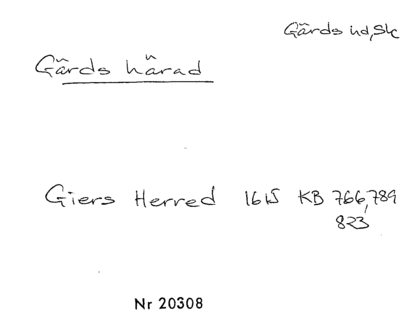 Gärds hd, Sk
Gärds härad
Giers Herred 1615 KB 766, 789
823
Nr 20308